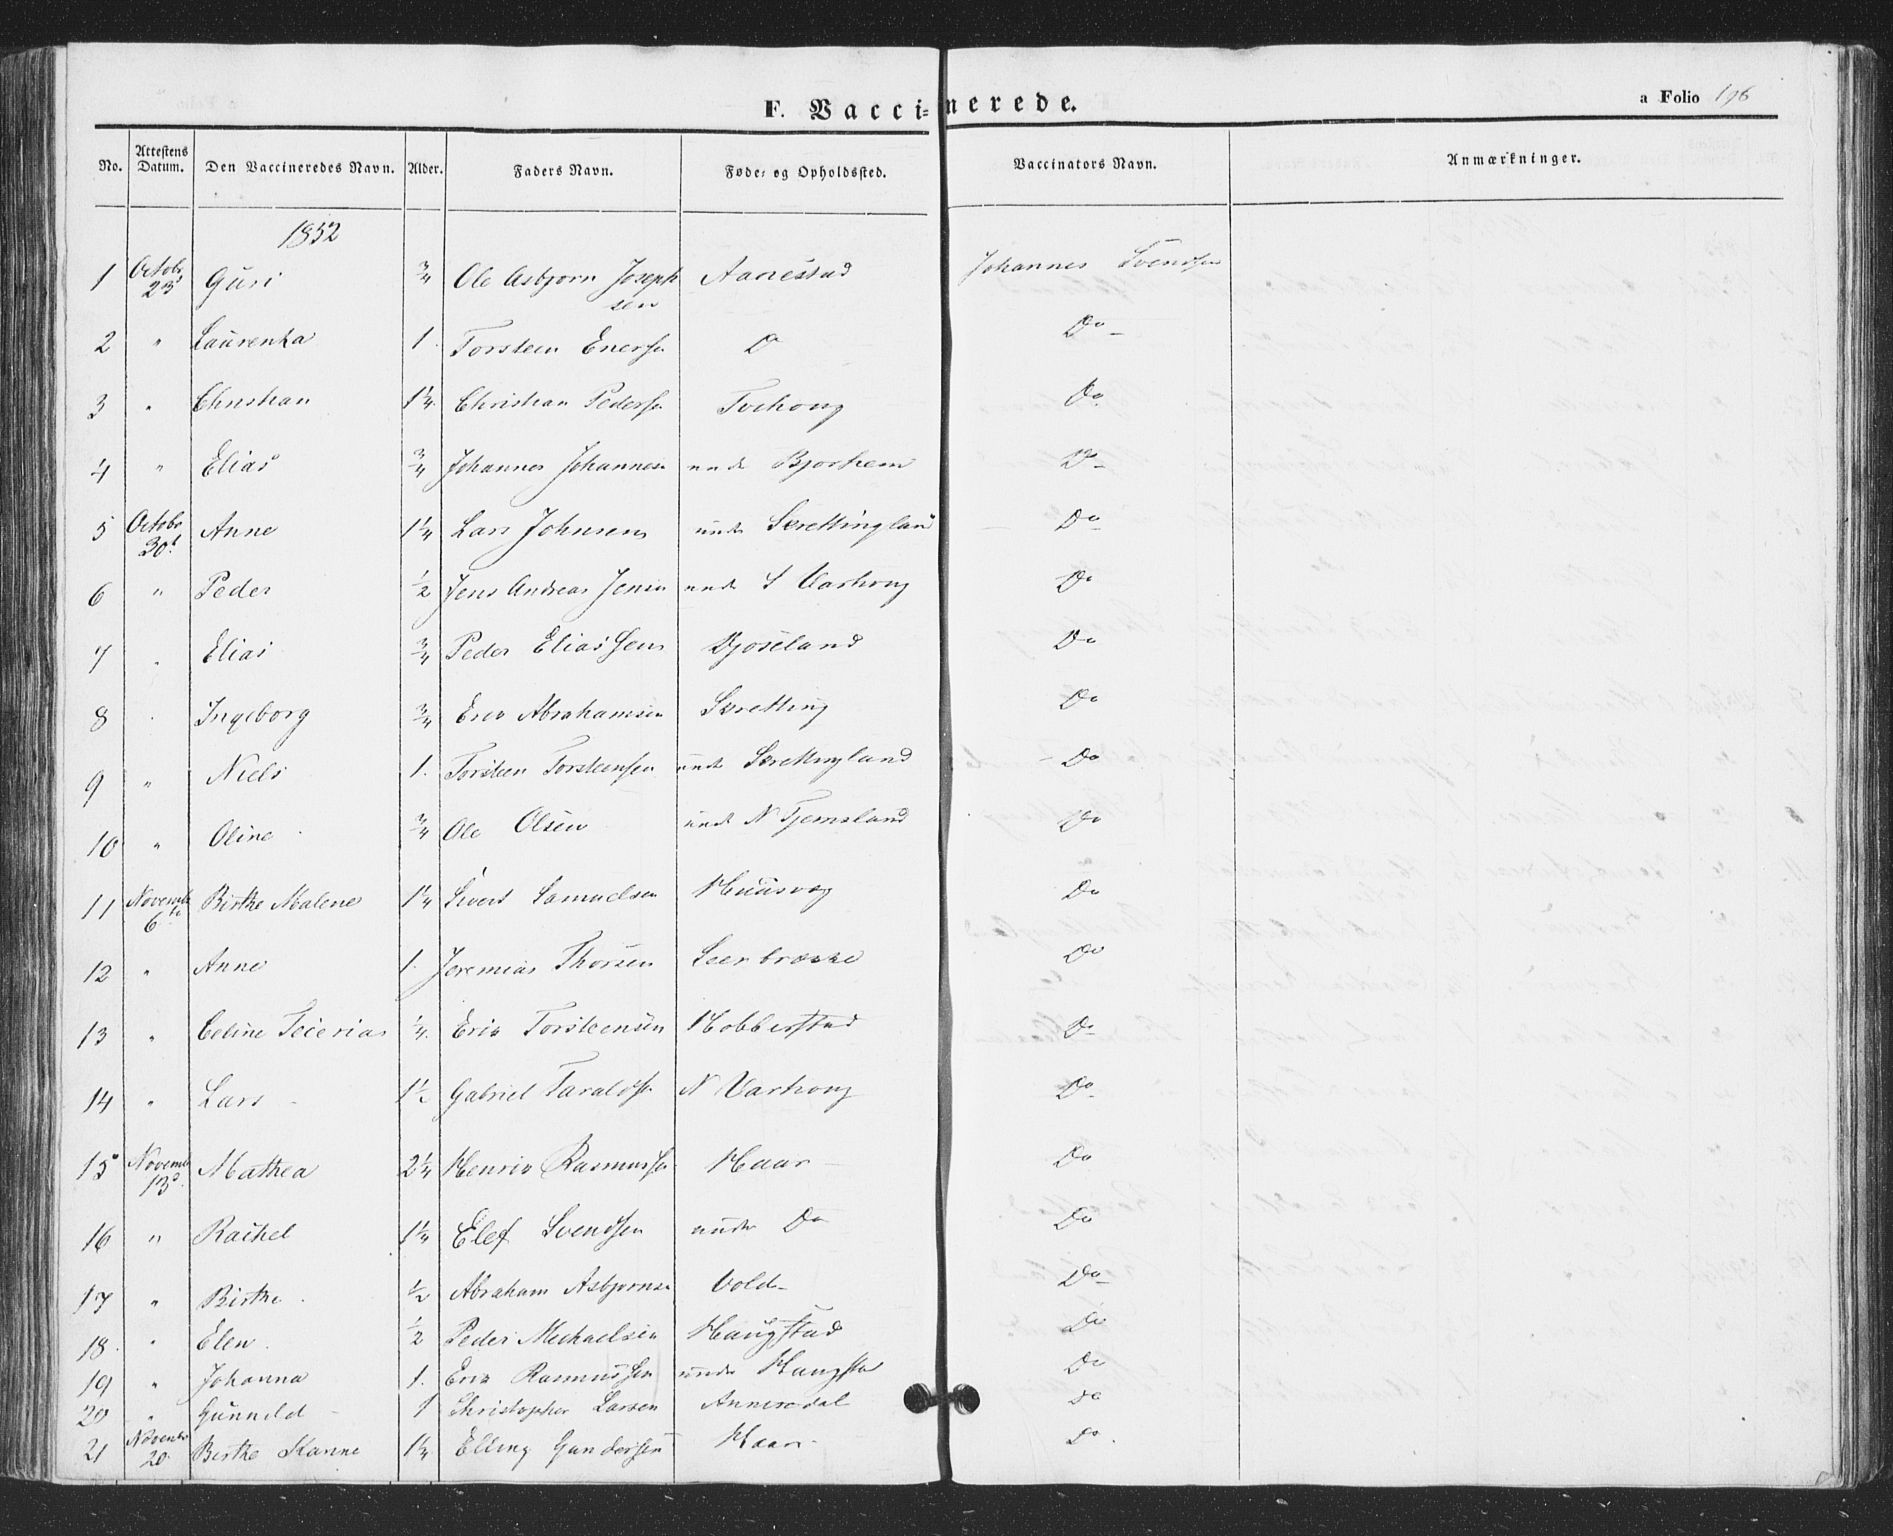 F. Vaccinerede.
a Folio 196
No. Attestens Datum. Den Vaccineredes Navn. Alder. Faders Navn. Føde- og Opholdssted. Vaccinators Navn. Anmærkninger.
1852
1 Octobr 23d Guri 3/4 Ole Asbjørn Josephsen Aanestad Johannes Svendsen
2 " Laurentza 1. Torsteen Enersen Do Do
3 " Christian 1 1/4 Christian Pedersen Tvihoug Do
4 " Elias 3/4 Johannes Johannesen unde Bjorhem Do
5 Octobr 30t Anne 1 1/4 Lars Johnsen unde Skrettingland Do
6 " Peder 1/2 Jens Andreas Jensen unde S Varhoug Do
7 " Elias 3/4 Peder Eliassen Djøseland Do
8 " Ingeborg 3/4 Eric Abrahamsen Skretting Do
9 " Niels 1. Torsteen Torsteensen unde Skrettingland Do
10 " Oline 3/4 Ole Olsen unde N Tjemsland Do
11 Novemb 6te Birthe Malene 1 1/4 Sivert Samuelsen Huusveg Do
12 " Anne 1. Jeremias Thorsen Leerbrække Do
13 " Celine Teierias 1/4. Eric Torsteensen Hobberstad Do
14 " Lars 1 1/2 Gabriel Taraldsen N Varhoug Do
15 Novemb 13d Mathea 2 1/4 Henric Rasmussen Haar Do
16 " Rachel 1 1/4 Elef Svendsen unde Do Do
17 " Birthe 1/2 Abraham Asbjørnsen Vold Do
18. " Elen 1/2 Peder Michaelsen Haugstad Do
19 " Johanna 1. Eric Rasmussen unde Haugstad Do
20 " Gunnild 1 Christopher Larsen Annisdal do
21 Novembr 20 Birthe Karine 1 1/4 Elling Gundersen Haar Do.